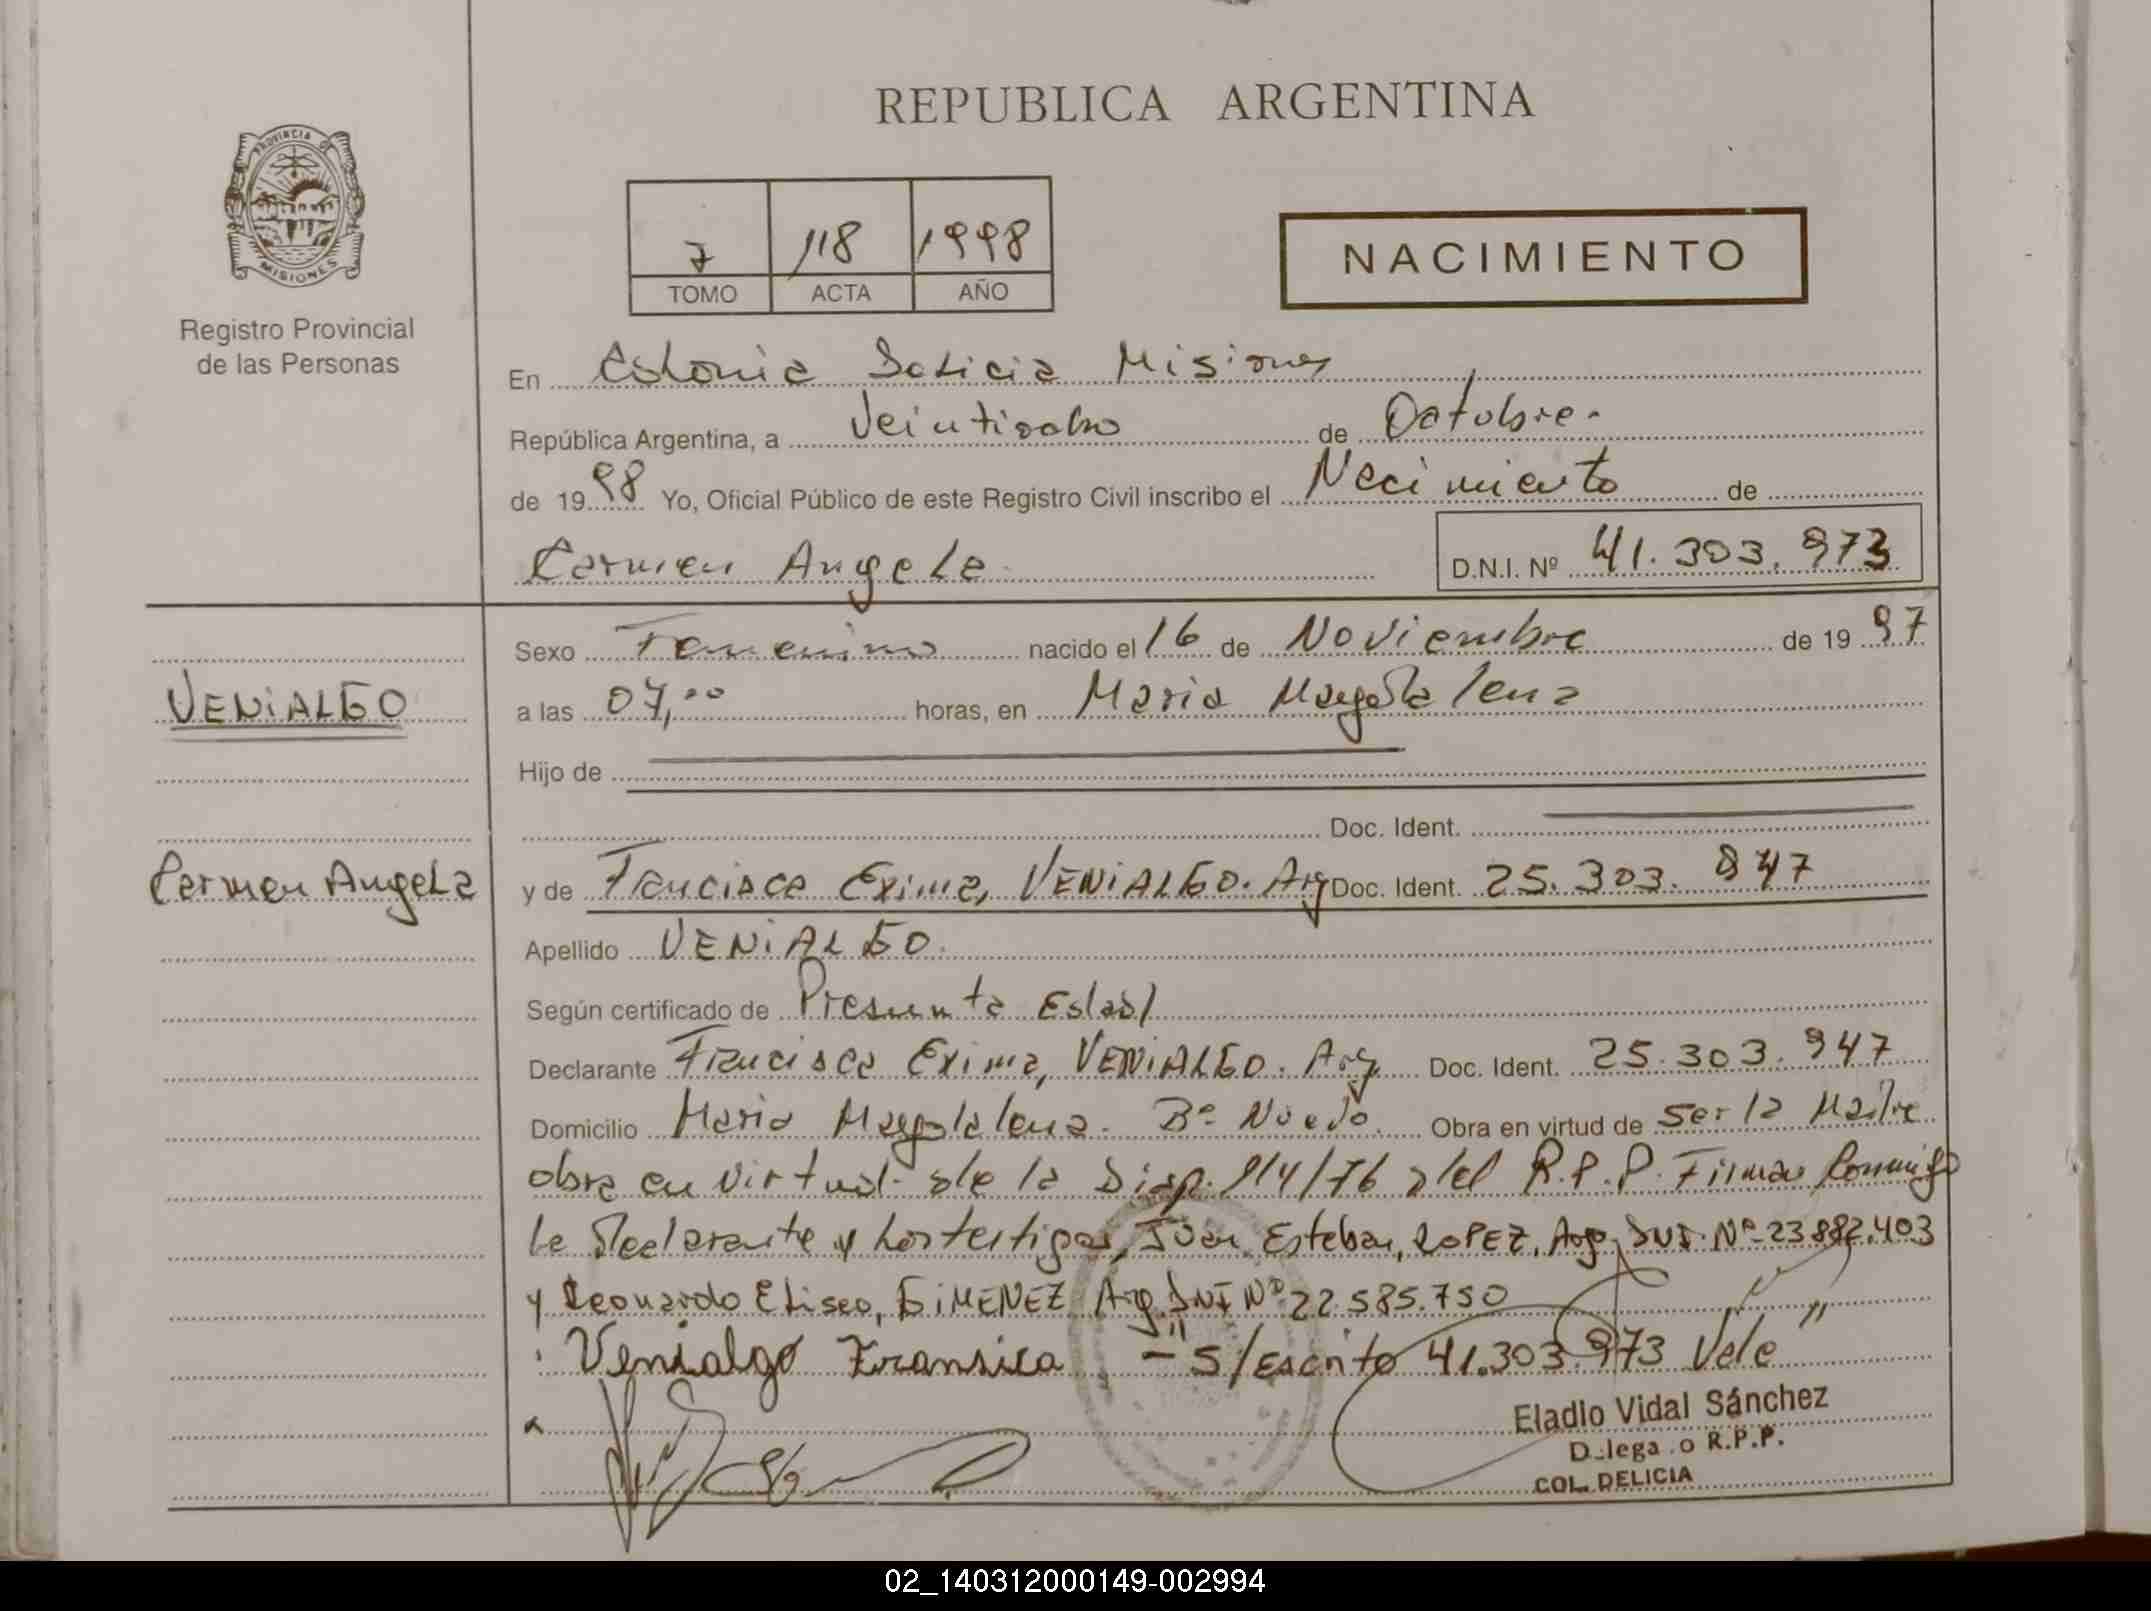 REPUBLICA ARGENTINA
PROVINCIA DE
MISIONES
Registro Provincial
de las Personas
7 118 1998
TOMO ACTA AÑO
NACIMIENTO
En Colonia Delicia Misiones
República Argentina, a Veintiocho de Octubre.
de 19 98 Yo, Oficial Público de este Registro Civil inscribo el Nacimiento de
Carmen Angela
D.N.I. Nº 41.303.973
Sexo Femenino nacido el 16 de Noviembre de 19 97
VENIALGO
a las 07,00 horas, en Maria Magdalena
Hijo de
Doc. Ident.
Carmen Angela
y de Francisca Exima, VENIALGO. Arg Doc. Ident. 25.303.947
Apellido VENIALGO.
Según certificado de Presunta Edad
Declarante Francisca Exima, VENIALGO. Arg Doc. Ident. 25.303.947
Domicilio Maria Magdalena. Bº Nuevo. Obra en virtud de Ser la Madre
obra en virtud de la Disp. 114/76 del R.P.P. Firman Conmigo
la Declarante y los testigos, Juan Esteban, LOPEZ, Arg. DNI. Nº 23.882.403
y Leonardo Eliseo, GIMENEZ Arg. DNI Nº 22.585.750
Venialgo Fransica - "S/Escrito 41.303.973 Vale"
Eladio Vidal Sánchez
D.lega.o R.P.P.
COL. DELICIA
02_140312000149-002994